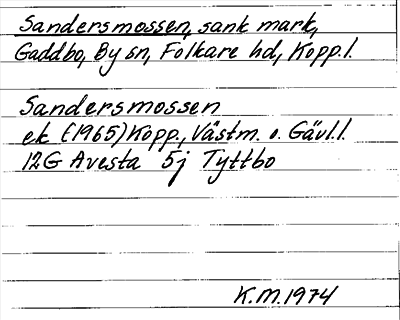 Sandersmossen, sank mark,
Gaddbo, By sn, Folkare hd, Kopp.l.
Sandersmossen
ek (1965) Kopp., Västm. o. Gävl.l.
12G Avesta 5j Tyttbo
K.M.1974